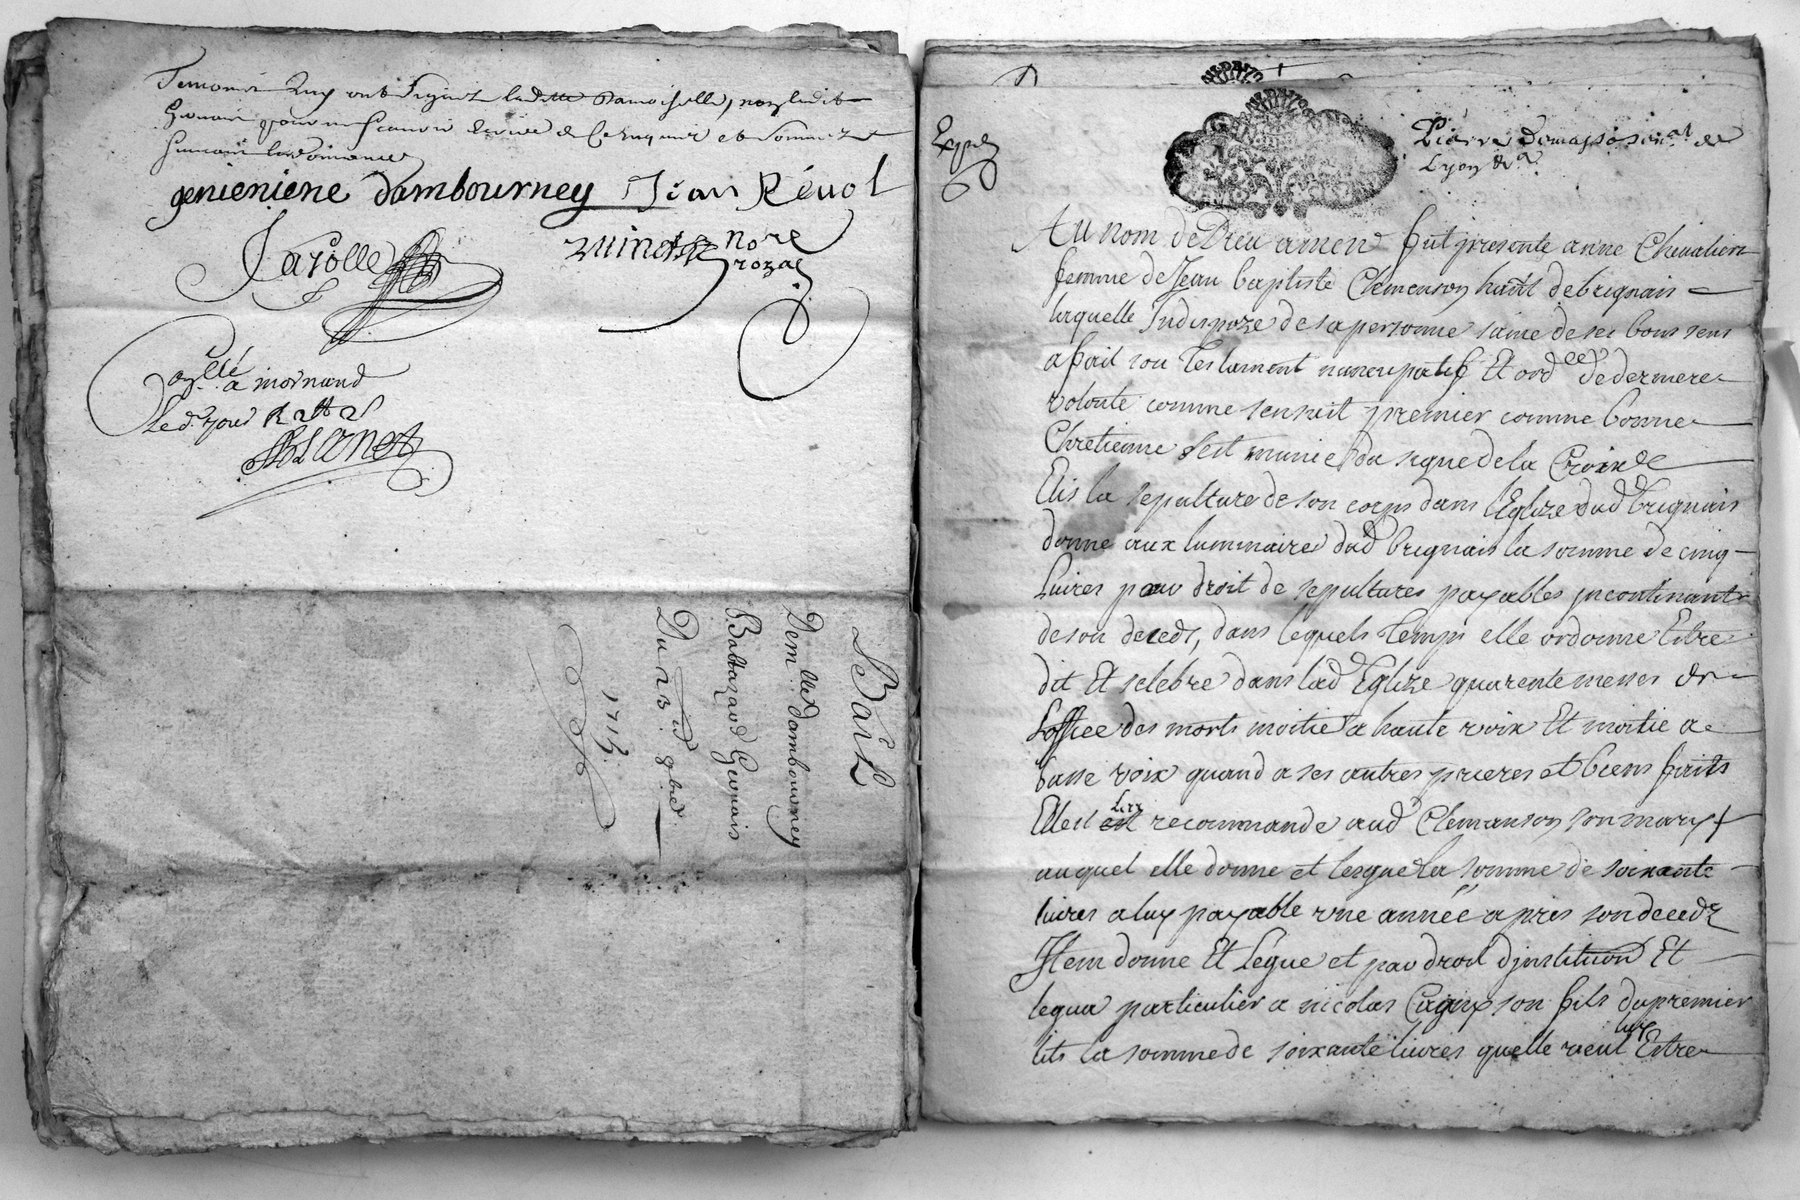 Temoins quy ont signé ladite Damoiselle, non ledit
Gervais pour ne scavoir de ce enquis et sommé
suivant lordonnance
genieniene dambourney Jean Révol
Parolle
zuinetsz nore
rozal
à mornand
Led. jour
Bail
Dem.lle dambourney
Baltazard Gervais
Du 23 9bre
1715
Expé
Pierre
Lyon &a
Au nom de Dieu amen fut presente anne Chevalier
femme de Jean baptiste Clemenson hant de brignais
laquelle Indispoze de sa personne saine de ses bons sens
a fait son Testament nuncupatif Et ord.ce de derniere
volonte comme sensuit premier comme bonne
Chretienne sest munie du signe de la Croix &
Elis la sepulture de son corps dans l'Eglize dud brignais
donne aux luminaire dud brignais la somme de cinq
Livres pour droit de sepultures payables incontinant
de son deceds, dans lequels temps elle ordonne Estre
dit Et selebre dans lad Eglize quarente messes &
Loffice des morts moitie a haute voix Et moitie a
basse voix quand a ses autres prieres et biens faits
Elle recommande aud Clemanson son mary
auquel elle donne et legue la somme de soixante
livres a luy payable une année apres son deceds
Item donne Et Légue et par droit d'institution Et
legua particulier a nicolas Cagny son fils du premier
lits la somme de soixante livres quelle veut luy Estre